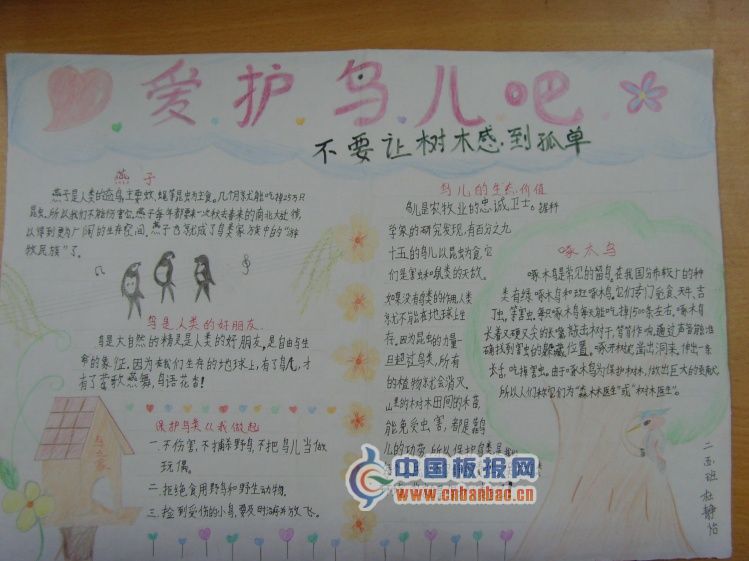 爱护鸟儿吧
不要让树木感到孤单
燕子
燕子是人类的益鸟,主要蚊、蝇等昆虫为主食。几个月就能吃掉25万只
昆虫。所以我们不能伤害它。燕子每年都要来一次秋去春来的南北大迁徙,
以得到更为广阔的生存空间。燕子也就成了鸟类家族中的“游
牧民族”了。
鸟是人类的好朋友
鸟是大自然的精灵是人类的好朋友,是自由与生
命的象征,因为在我们生存的地球上,有了鸟儿,才
有了莺歌燕舞,鸟语花香!
保护鸟类从我做起
一.不伤害,不捕杀野鸟,不把鸟儿当做
玩偶。
二.拒绝食用野鸟和野生动物。
三.捡到受伤的小鸟,要及时治疗放飞。
鸟之家
鸟儿的生态价值
鸟儿是农牧业的忠诚卫士。据科
学家的研究发现,有百分之九
十五的鸟儿以昆虫为食,它
们是害虫和鼠类的天敌。
如果没有鸟类的作用,人类
就不能在地球上生
存。因为昆虫的力量一
旦超过鸟类,所有
的植物就会消灭。
山里的树木田间的禾苗,
能免受虫害,都是靠鸟
儿的功劳,所以保护鸟类是
啄木鸟
啄木鸟是常见的留鸟,在我国分布较广的种
类有绿啄木鸟和斑啄木鸟。它们专门觅食天牛、吉
丁虫、等害虫。每只啄木鸟每天能吃掉1500条左右。啄木鸟
长着又硬又尖的长嘴敲击树干,笃笃作响,通过声音能准
确找到害虫的躲藏位置。啄开树皮凿出洞来,伸出一条
长舌,吃掉害虫。由于啄木鸟为保护树林,做出巨大的贡献
所以人们称它们为“森林医生”或“树木医生”。
二五班 杜静怡
中国板报网
www.cnbanbao.cn